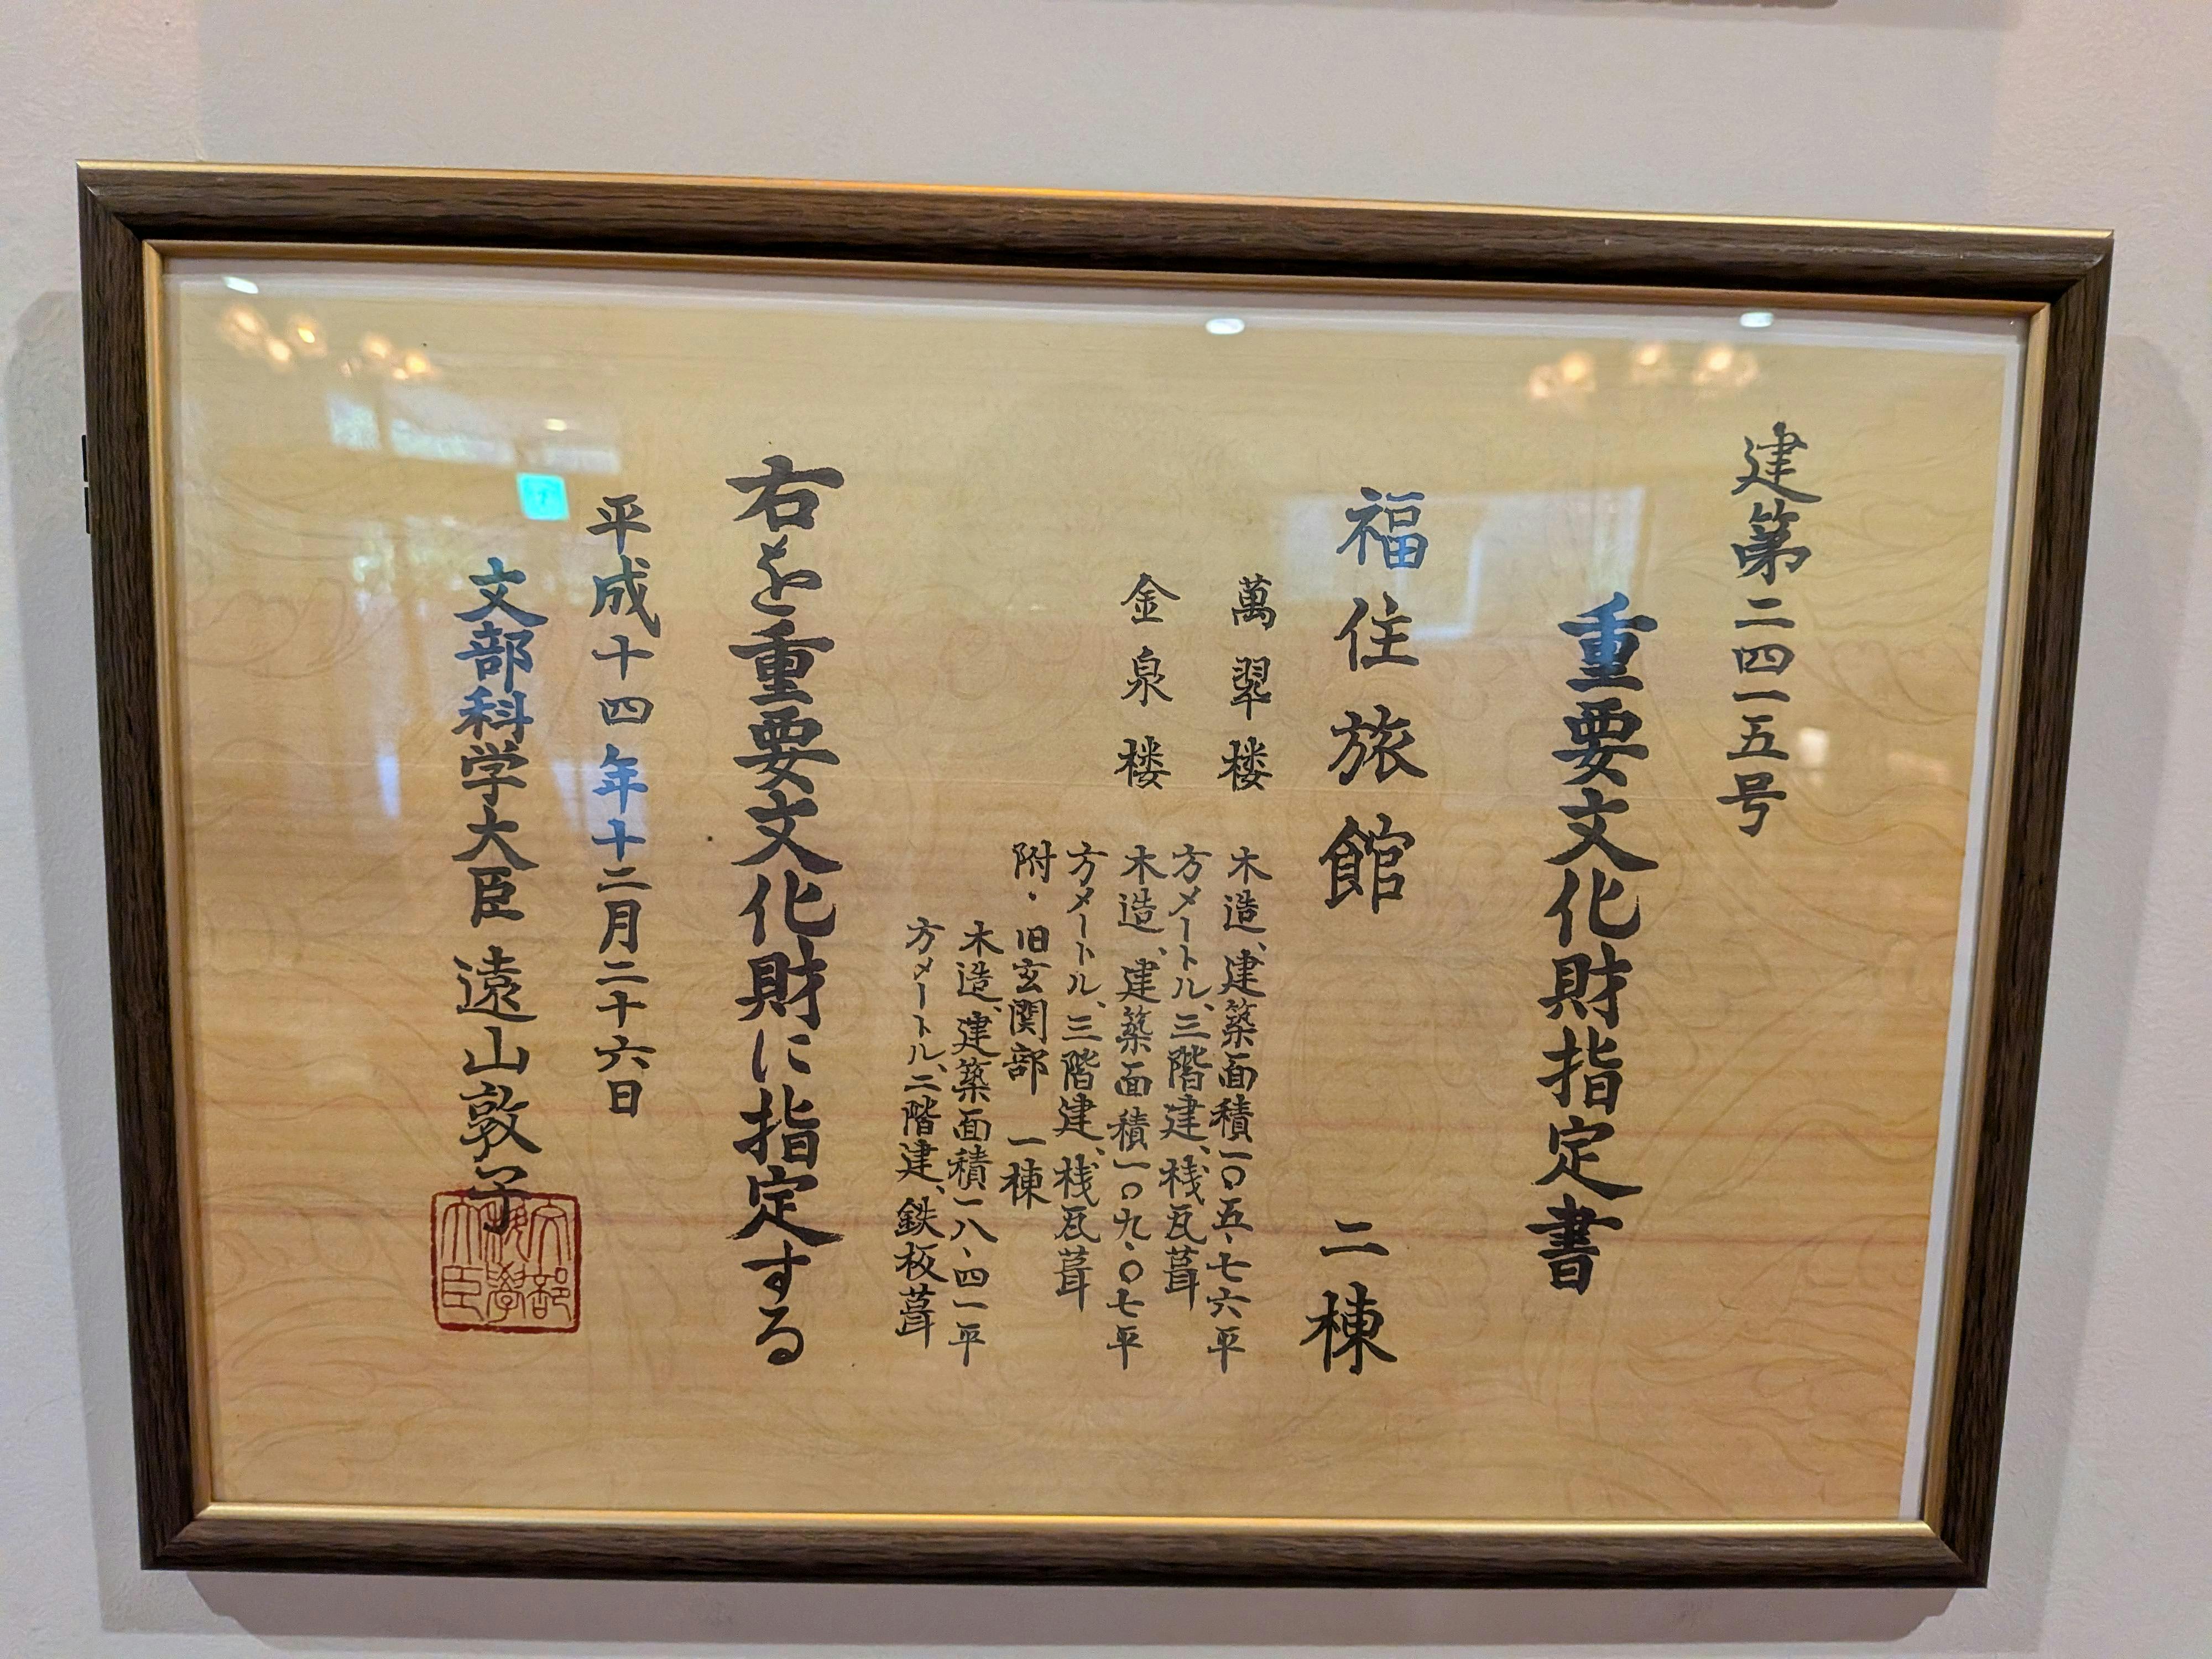 建第二四一五号
重要文化財指定書
福住旅館 二棟
萬翠楼 木造、建築面積一〇五・七六平
方メートル、三階建、桟瓦葺
金泉楼 木造、建築面積一〇九・〇七平
方メートル、三階建、桟瓦葺
附・旧玄関部 一棟
木造、建築面積一八・四一平
方メートル、二階建、鉄板葺
右を重要文化財に指定する
平成十四年十二月二十六日
文部科学大臣 遠山敦子
文部
科學
大臣